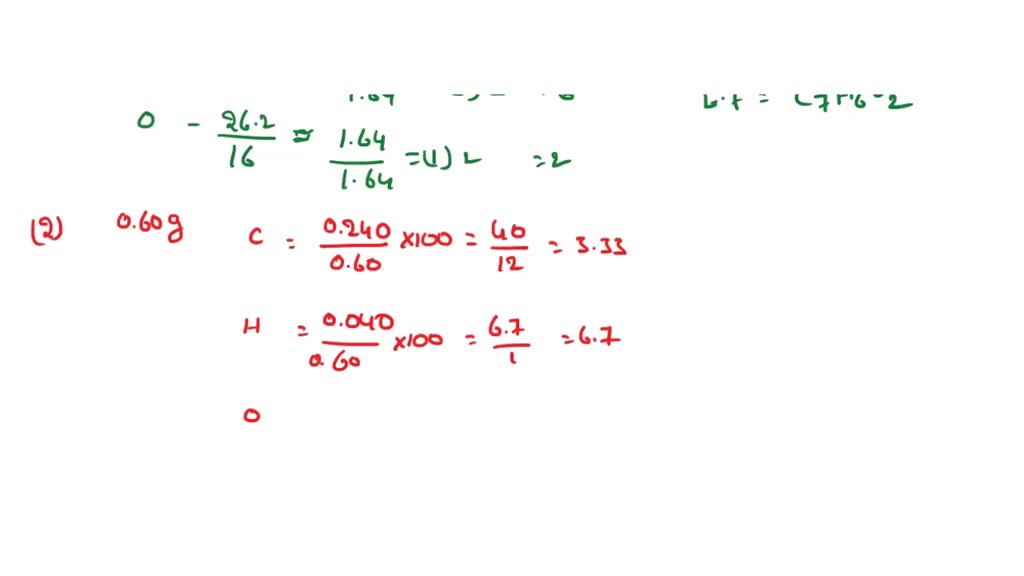 O - 26.2/16 = 1.64/1.64 = (1) 2 = 2
(2) 0.60g C = 0.240/0.60 x100 = 40/12 = 3.33
H = 0.040/0.60 x100 = 6.7/1 = 6.7
O